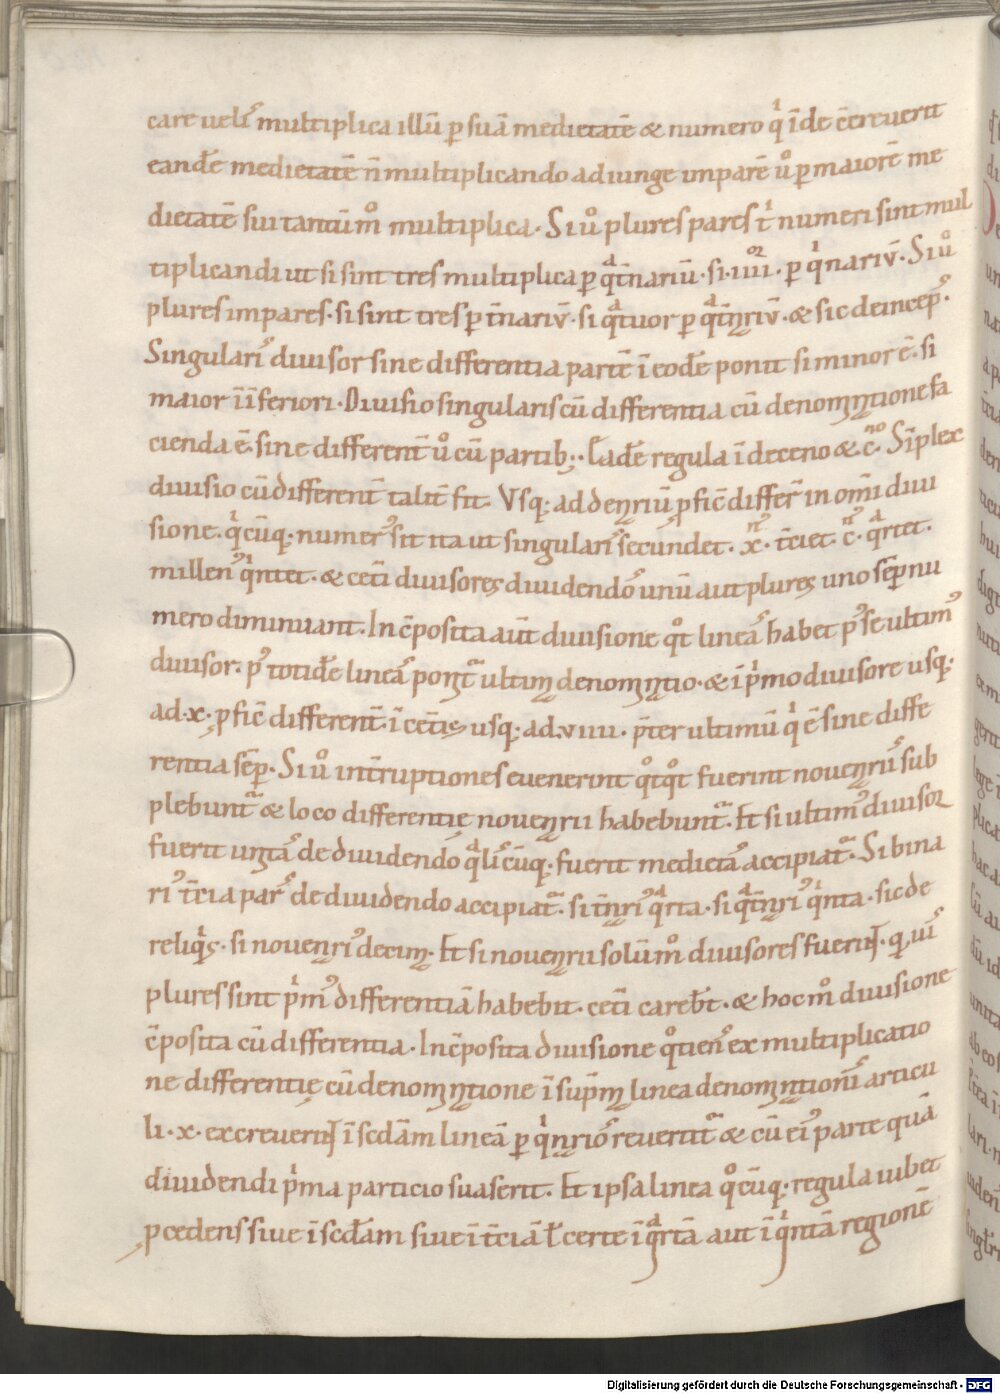 care uelı̄ multiplica illū ꝑ suā medietatē & numero qͥ īde c̄creuerit
eandē medietatē n̄ multiplicando adiunge imparē ů ꝑ maiorē me
dietatē sui tantūm̊ multiplica. Si ů plures pares t̄ numeri sint mul
tiplicandi ut si sint tres multiplica ꝑ qᷓt̄nariū. si. iiii. ꝑ qͥnariū. Si ů
plures impares. si sint tres ꝑ t̄nariū. si qᷓtuor ꝑ qᷓt̄nr̄iū. & sic deincep̄.
Singulari᾽ diuisor sine differentia partē ī eodē ponit si minor ē. si
maior ī īferiori. Diuisio singularis cū differentia cū denominatione fa
cienda ē. sine different̄ ů cū partib;. Eadē regula ī deceno & c̄no. Sīplex
diuisio cū different̄ talit̄ fit. Vsq; ad denr̄iū ꝓfic̄ differ̄ in om̄i diui
sione. qͥcūq; numer᾽ sit ita ut singulari᾽ secundet. x̄. t̄ciet. c̄. qᷓrtet.
millen᾽ qͥntet. & cet̄i diuisores diuidendo᾽ unū aut plures uno sēꝑ nu
mero diminuant. In c̄posita aūt diuisione qͦt lineas habet p᾽ se ultim᾽
diuisor. p᾽ totidē lineas ponit᷑ ultima denominatio. & ī pͥmo diuisore usq;
ad. x. ꝓfic̄ different̄. ī cet̄is usq; ad. viiii. p̄ter ultimū qͥ ē sine diffe
rentia sēꝑ. Si ů int̄ruptiones euenerint qͦtqͦt fuerint nouenr̄iū sub
plebunt᷑ & loco differentię nouenr̄ii habebunt᷑. Et si ultim᾽ diuisor
fuerit unitas de diuidendo qᷓliscūq; fuerit medietas accipiat᷑. Si bina
ri᾽ t̄cia pars de diuidendo accipiat᷑. si t̄nri᾽ qᷓrta. si qᷓt̄nri᾽ qͥnta. sic de
reliqͥs. si nouenri᾽ decima. Et si nouenrii solūm̊ diuisores fuerint. quis
plures sint pͥm᾽ differentiā habebit. cet̄i careb̄t. & hoc m̊ diuisione
c̄posita cū differentia. In c̄posita diuisione qͦtiens ex multiplicatio
ne differentię cū denominatione ī sup̄ma linea denominationis articu
li. x. excreuerint ī sc̄dam lineā ꝑ qͥnrios reuertit᷑ & cū ei᾽ parte quā
diuidendi pͥma particio suaserit. Et ipsa linea qͦcūq; regula iubet
ꝓcedens siue ī sc̄dam siue ī t̄ciā ł certe ī qᷓrtā aut ī qͥntā regionē
Digitalisierung gefördert durch die Deutsche Forschungsgemeinschaft - DFG